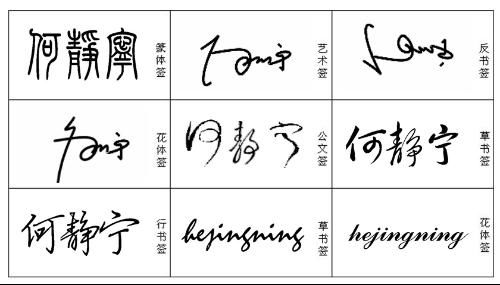 何靜寧 篆体签
何静宁 艺术签
何静宁 反书签
何静宁 花体签
何静宁 公文签
何静宁 草书签
何静宁 行书签
hejingning 草书签
hejingning 花体签